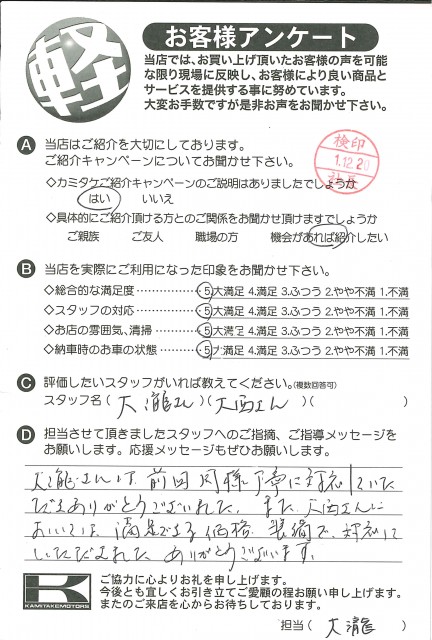 軽
お客様アンケート
当店では、お買い上げ頂いたお客様の声を可能
な限り現場に反映し、お客様により良い商品と
サービスを提供する事に努めています。
大変お手数ですが是非お声をお聞かせ下さい。
A 当店はご紹介を大切にしております。
ご紹介キャンペーンについてお聞かせ下さい。
検印
1.12.20
社長
◇カミタケご紹介キャンペーンのご説明はありましたでしょうか
はい いいえ
◇具体的にご紹介頂ける方とのご関係をお聞かせ頂けますでしょうか
ご親族 ご友人 職場の方 機会があれば紹介したい
B 当店を実際にご利用になった印象をお聞かせ下さい。
◇総合的な満足度 5.大満足 4.満足 3.ふつう 2.やや不満 1.不満
◇スタッフの対応 5.大満足 4.満足 3.ふつう 2.やや不満 1.不満
◇お店の雰囲気、清掃 5.大満足 4.満足 3.ふつう 2.やや不満 1.不満
◇納車時のお車の状態 5.大満足 4.満足 3.ふつう 2.やや不満 1.不満
C 評価したいスタッフがいれば教えてください。(複数回答可)
スタッフ名(大瀧さん)(大西さん)( )
D 担当させて頂きましたスタッフへのご指摘、ご指導メッセージを
お願いします。応援メッセージもぜひお願いします。
大瀧さんは、前回同様丁寧に対応していた
だきありがとうございました。また、大西さんに
おいては、満足できる価格、装備で、対応して
いただきました。ありがとうございます。
K
KAMITAKEMOTORS
ご協力に心よりお礼を申し上げます。
今後とも宜しくお引き立てご愛顧の程お願い申し上げます。
またのご来店を心からお待ちしております。
担当(大瀧)